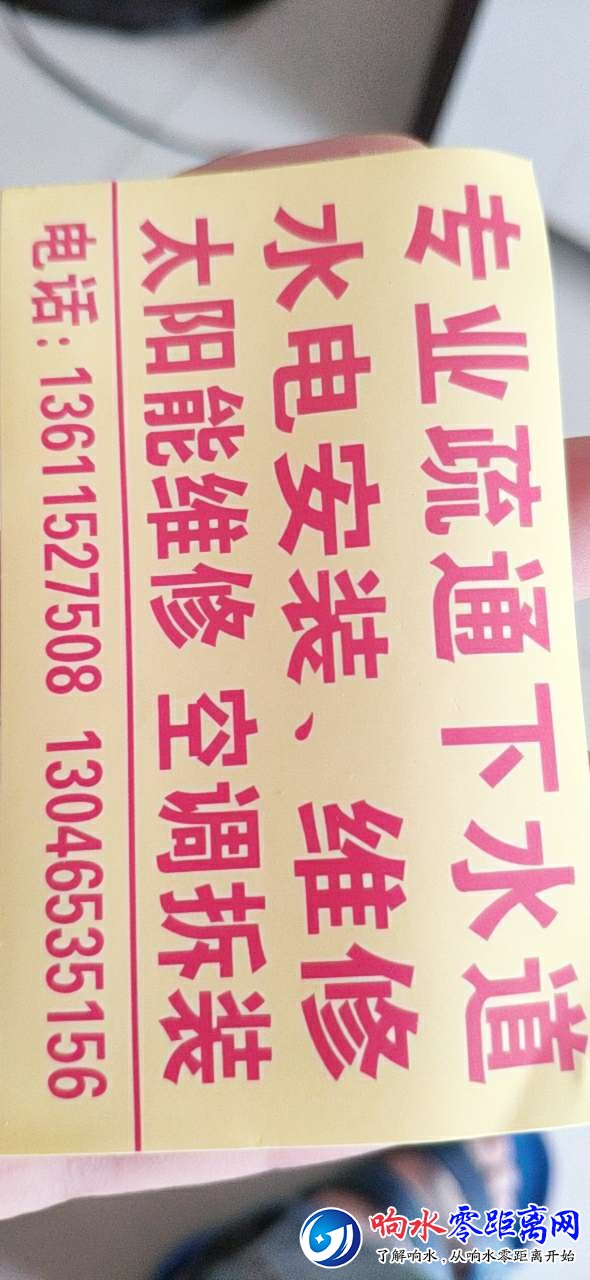 专业疏通下水道
水电安装、维修
太阳能维修 空调拆装
电话:13611527508 13046535156
响水零距离网
了解响水,从响水零距离开始